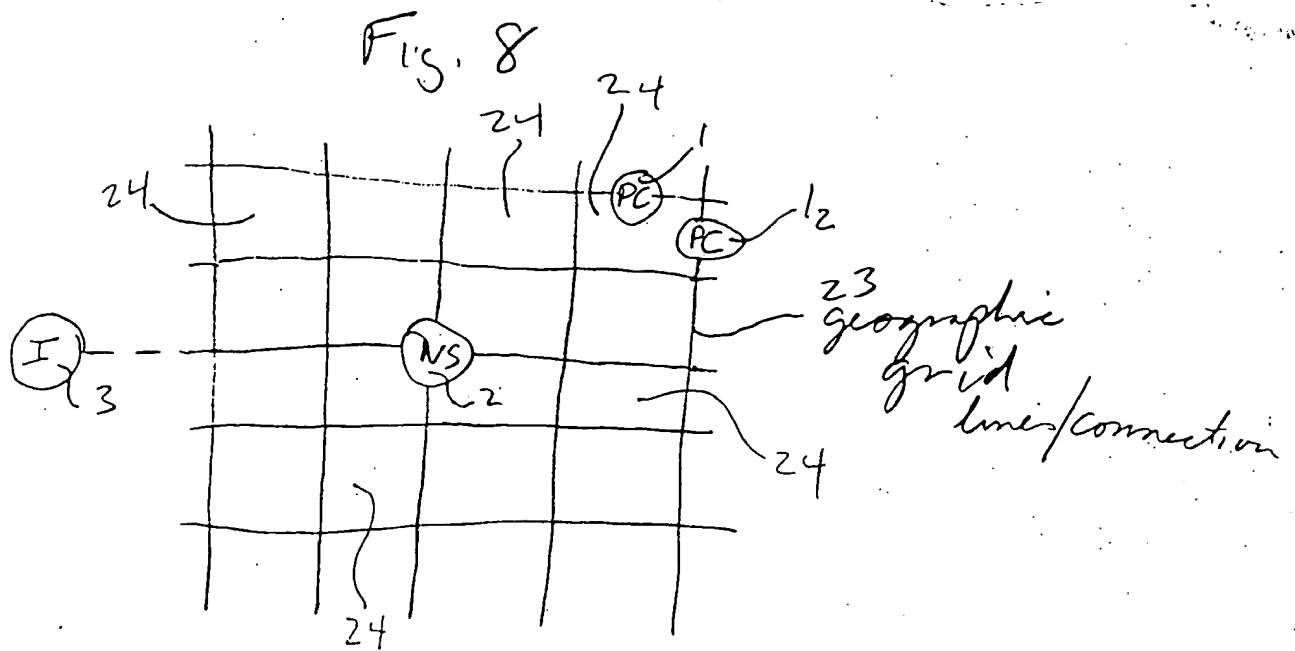 Fig. 8
24
24
1
24
PC
PC
12
23
geographic
grid
lines/connection
I
NS
3
2
24
24